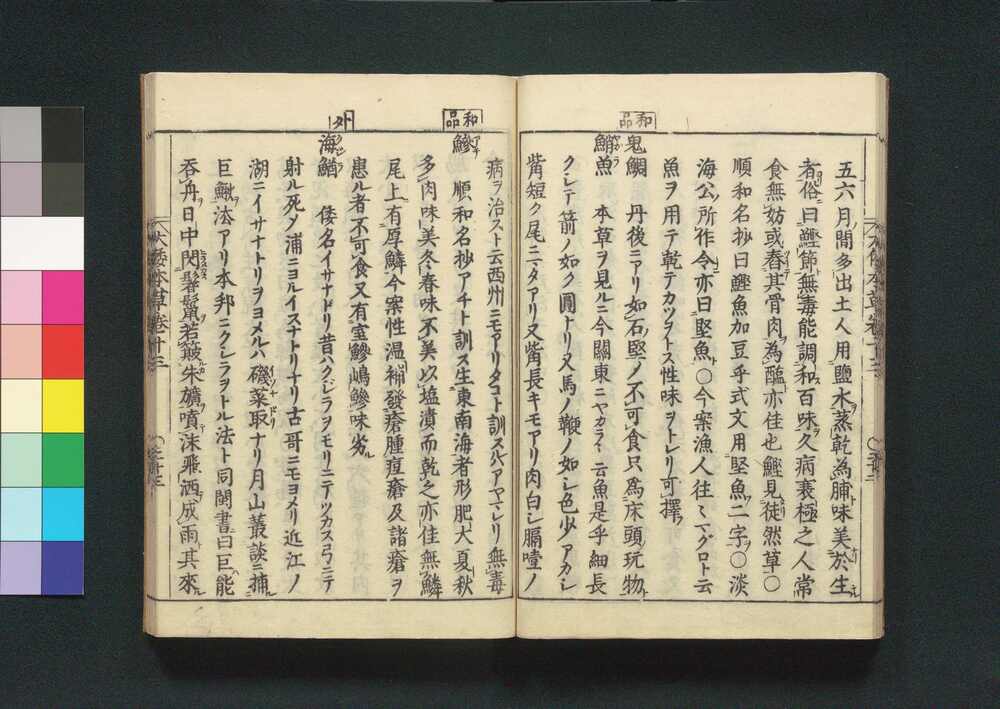 和品
五六月間多出土人用鹽水蒸乾為脯味美於生
者俗曰鰹節無毒能調和百味久病衰極之人常
食無妨或舂其骨肉為醢亦佳也鰹見徒然草〇
順和名抄曰鰹魚加豆乎式文用堅魚二字〇淡
海公所作令亦曰堅魚〇今案漁人往々マグロト云
魚ヲ用テ乾テカツヲトス性味ヲトレリ可擇
鬼鯛 丹後ニアリ如石堅ノ不可食只為床頭玩物
鮹魚 本草ヲ見ルニ今關東ニヤカラト云魚是乎細長
クシテ箭ノ如ク圓ナリ又馬ノ鞭ノ如シ色少アカシ
觜短ク尾ニマタアリ又觜長キモアリ肉白シ膈噎ノ
和品
外
病ヲ治スト云西州ニモアリタコト訓スルハアヤマレリ無毒
鰺 順和名抄アチト訓ス生東南海者形肥大夏秋
多肉味美冬春味不美以塩漬而乾之亦佳無鱗
尾上有厚鱗今案性温補發瘡腫疽瘡及諸瘡ヲ
患ル者不可食又有室鰺嶋鰺味劣
海鰌 倭名イサナドリ昔ハクジラヲモリニテツカス弓ニテ
射ル死ノ浦ニヨルイスナトリナリ古哥ニモヨメリ近江ノ
湖ニイサナトリヲヨメルハ磯菜取ナリ月山叢談ニ捕
巨鰍法アリ本邦ニクシラヲトル法ト同閩書曰巨能
吞舟日中閃鬐鬣若簸朱旗噴沫飛洒成雨其來
大倭本草卷十三